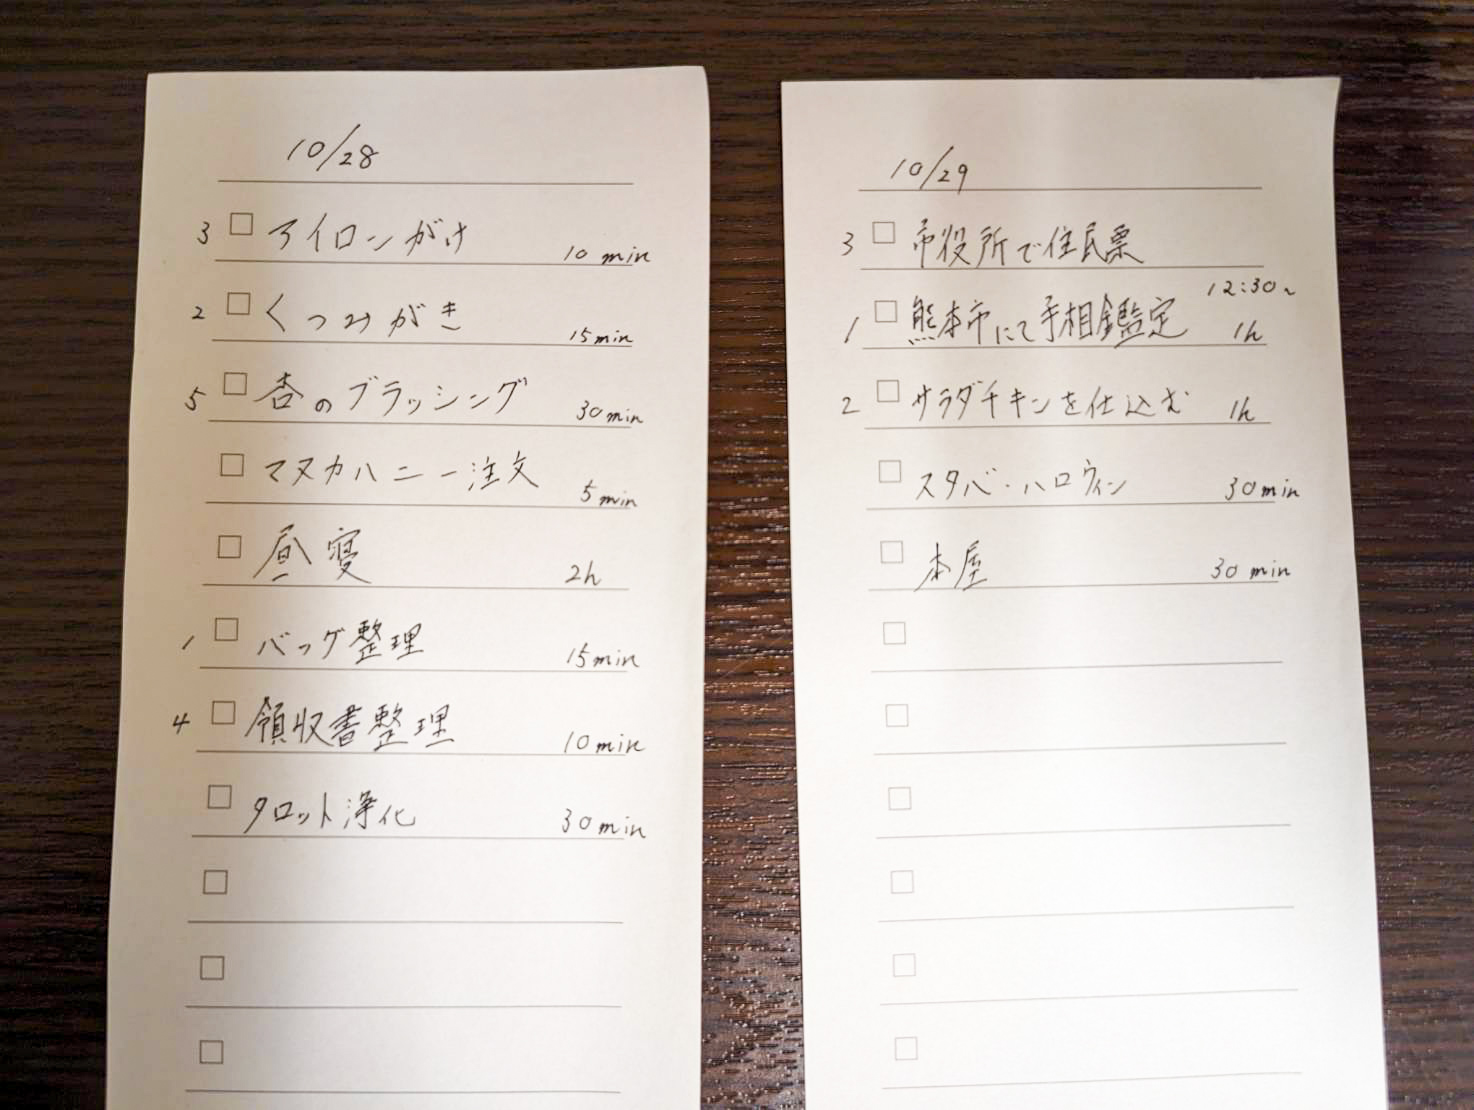 10/28
3 □ アイロンがけ 10 min
2 □ くつみがき 15 min
5 □ 杏のブラッシング 30 min
□ マヌカハニー注文 5 min
□ 昼寝 2h
1 □ バッグ整理 15 min
4 □ 領収書整理 10 min
□ タロット浄化 30 min
10/29
3 □ 市役所で住民票
12:30~
1 □ 熊本市にて手相鑑定 1h
2 □ サラダチキンを仕込む 1h
□ スタバ・ハロウィン 30 min
□ 本屋 30 min